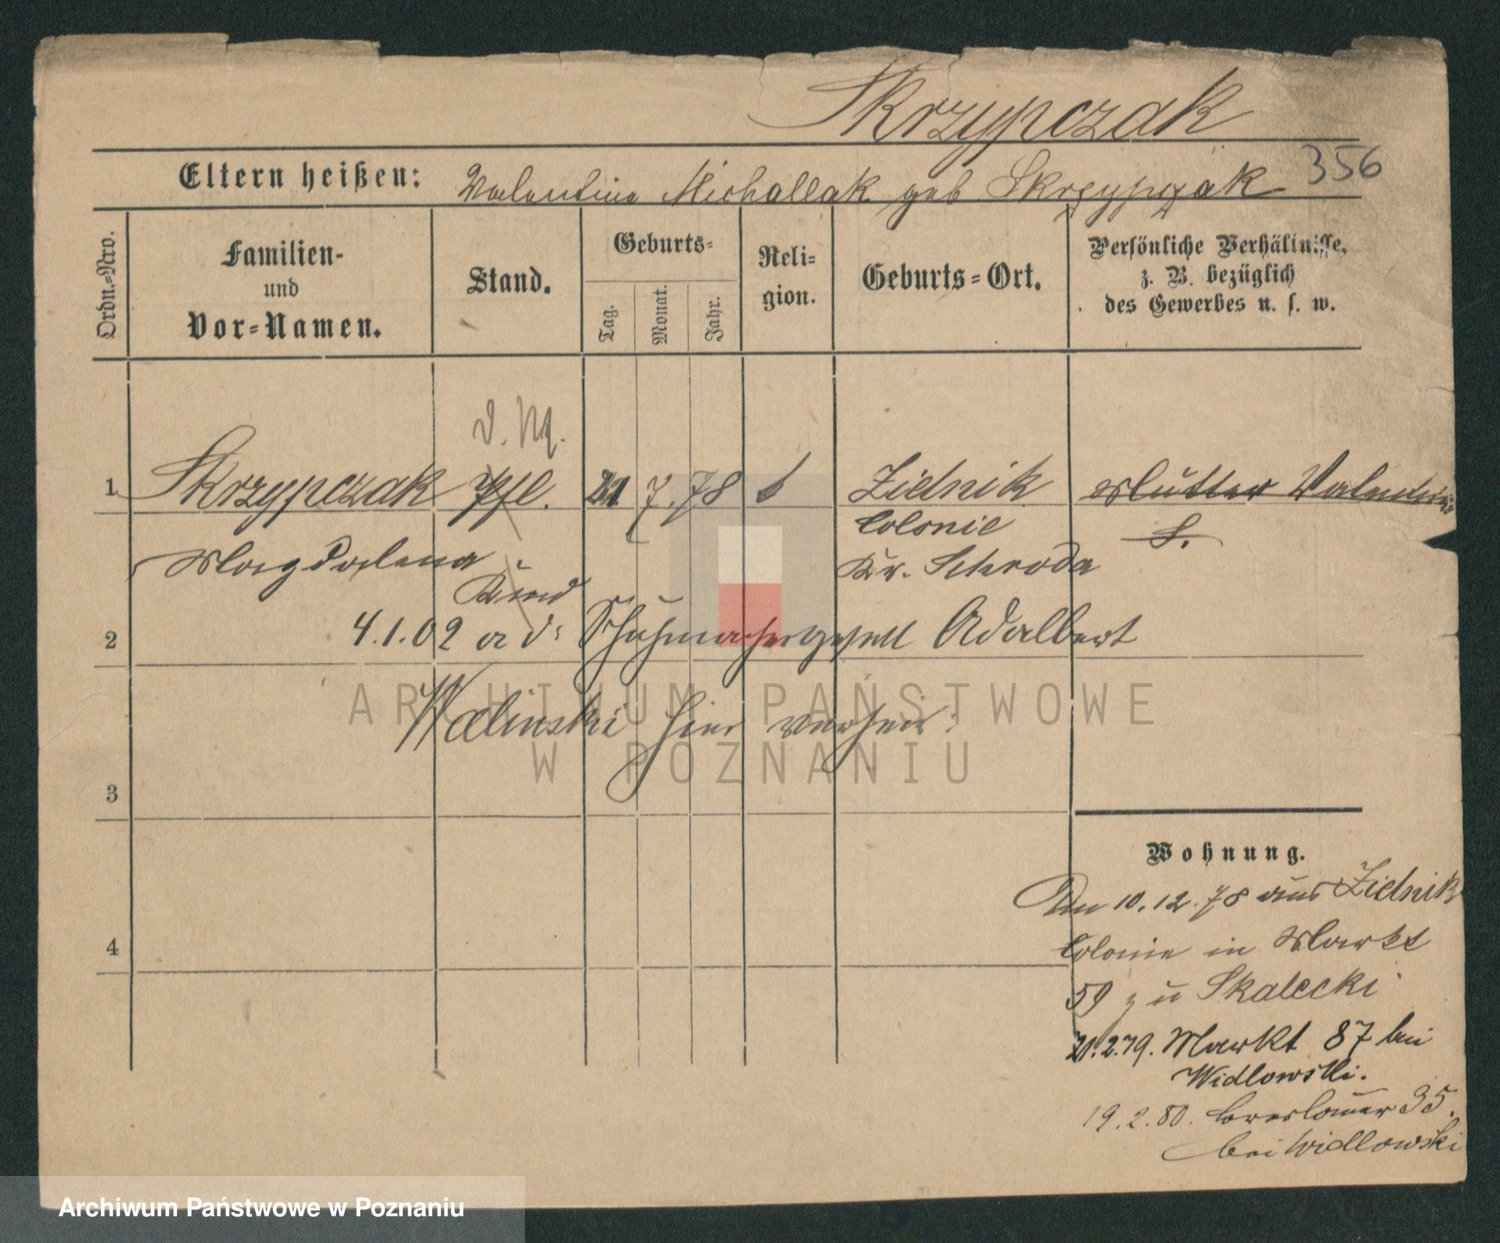 Skrzypczak
356
Eltern heißen: Valentine Michallak geb Skrzypczak
Ordn.-Nro.
Familien- und Vor-Namen.
Stand.
Geburts-
Tag.
Monat.
Jahr.
Religion.
Geburts-Ort.
Persönliche Verhältnisse, z. B. bezüglich des Gewerbes u. s. w.
d. M.
1 Skrzypczak Pfl. 21 7. 78 k Zielnik Mutter Valentine
Colonie S.
Magdalena Kind Kr. Schroda
2 4.1.02 a d: Schuhmachergesell Adalbert
Walinski hier verheir:
3
4
Wohnung.
Den 10.12.78 aus Zielnik
Colonie in Markt
59 zu Skalecki
21.2.79. Markt 87 bei
Widlowski.
19.2.80. Breslauer 35.
bei Widlowski
ARCHIWUM PAŃSTWOWE
W POZNANIU
Archiwum Państwowe w Poznaniu